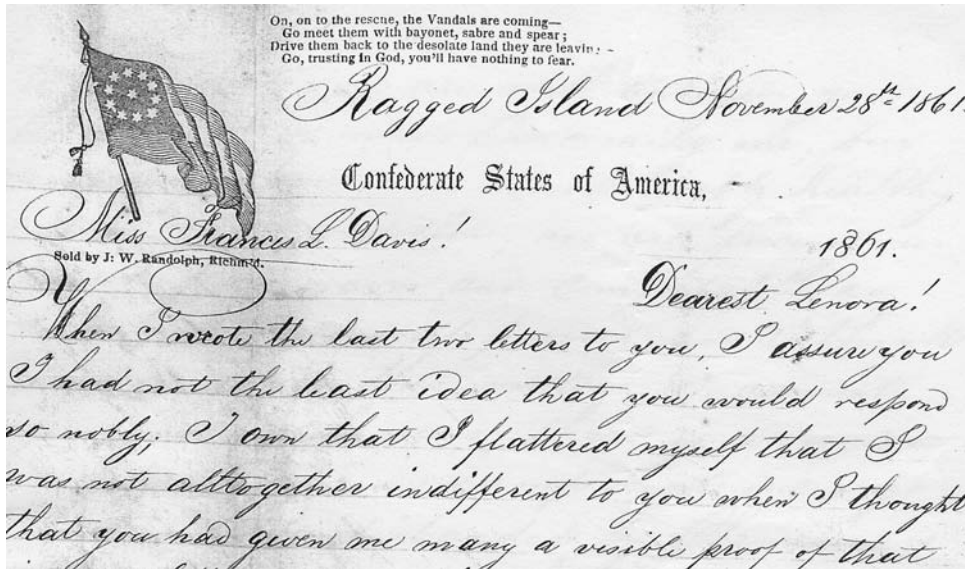 On, on to the rescue, the Vandals are coming—
Go meet them with bayonet, sabre and spear;
Drive them back to the desolate land they are leaving
Go, trusting in God, you'll have nothing to fear.
Ragged Island November 28th 1861.
Confederate States of America,
Miss Frances L. Davis!
1861.
Sold by J. W. Randolph, Richm'd.
Dearest Lenora!
When I wrote the last two letters to you, I assure you
I had not the least idea that you would respond
so nobly; I own that I flattered myself that I
was not alltogether indifferent to you when I thought
that you had given me many a visible proof of that